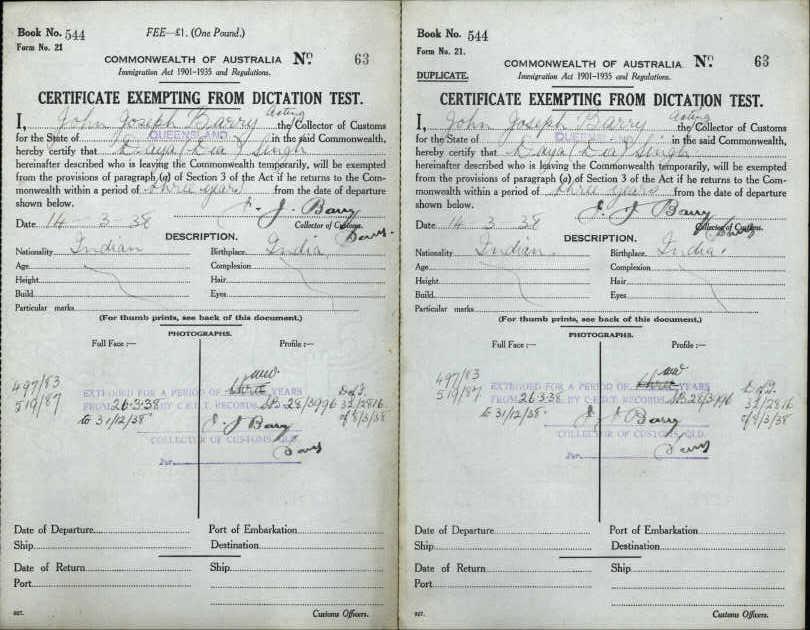 Book No. 544
FEE—£1. (One Pound.)
Form No. 21
COMMONWEALTH OF AUSTRALIA No. 63
Immigration Act 1901-1935 and Regulations.
CERTIFICATE EXEMPTING FROM DICTATION TEST.
I, John Joseph Barry Acting the Collector of Customs
for the State of QUEENSLAND in the said Commonwealth,
hereby certify that Daya / Dea Singh
hereinafter described who is leaving the Commonwealth temporarily, will be exempted
from the provisions of paragraph (a) of Section 3 of the Act if he returns to the Com-
monwealth within a period of three years from the date of departure
shown below.
J. J. Barry
Date 14-3-38
Collector of Customs.
DESCRIPTION.
Nationality Indian
Birthplace India
Age
Complexion
Height
Hair
Build
Eyes
Particular marks
(For thumb prints, see back of this document.)
PHOTOGRAPHS.
Full Face :—
Profile :—
497/83
519/87
EXTENDED FOR A PERIOD OF three YEARS
FROM 26·3·38 BY C.E.D.T. RECORDS 38/3996
to 31/12/38
32/2816
8/3/38
J. J. Barry
COLLECTOR OF CUSTOMS QLD.
Per
Date of Departure
Port of Embarkation
Ship
Destination
Date of Return
Ship
Port
Customs Officers.
Book No. 544
Form No. 21.
COMMONWEALTH OF AUSTRALIA No. 63
DUPLICATE.
Immigration Act 1901-1935 and Regulations.
CERTIFICATE EXEMPTING FROM DICTATION TEST.
I, John Joseph Barry Acting the Collector of Customs
for the State of QUEENSLAND in the said Commonwealth,
hereby certify that Daya / Dea Singh
hereinafter described who is leaving the Commonwealth temporarily, will be exempted
from the provisions of paragraph (a) of Section 3 of the Act if he returns to the Com-
monwealth within a period of three years from the date of departure
shown below.
J. J. Barry
Date 14-3-38
Collector of Customs.
DESCRIPTION.
Nationality Indian.
Birthplace India.
Age
Complexion
Height
Hair
Build
Eyes
Particular marks
(For thumb prints, see back of this document.)
PHOTOGRAPHS.
Full Face :—
Profile :—
497/83
519/87
EXTENDED FOR A PERIOD OF three YEARS
FROM 26·3·38 BY C.E.D.T. RECORDS 38/3996
to 31/12/38
32/2816
8/3/38
J. J. Barry
COLLECTOR OF CUSTOMS QLD.
Per
Date of Departure
Port of Embarkation
Ship
Destination
Date of Return
Ship
Port
Customs Officers.